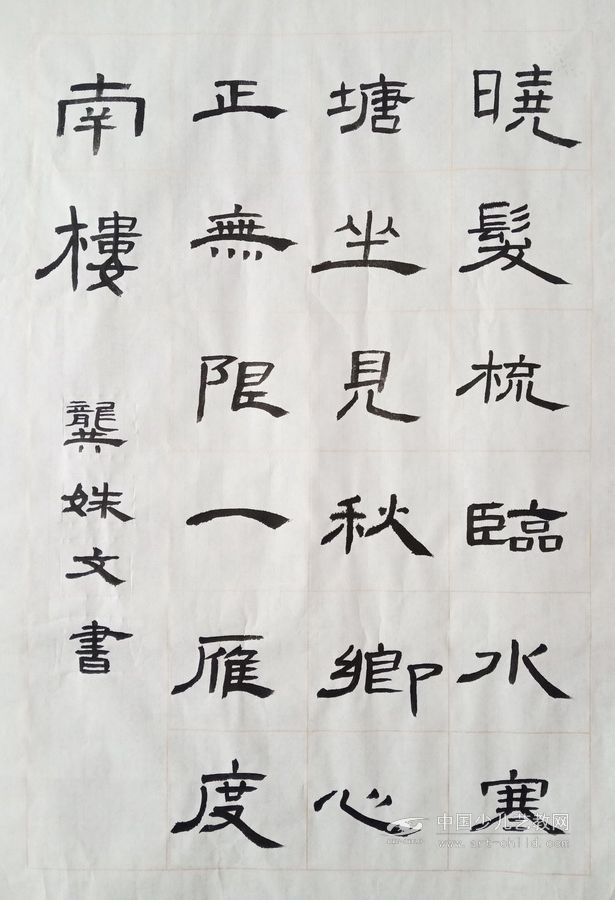 曉髮梳臨水寒
塘坐見秋鄉心
正無限一雁度
南樓
龔姝文書
中国少儿艺教网
www.art-child.com